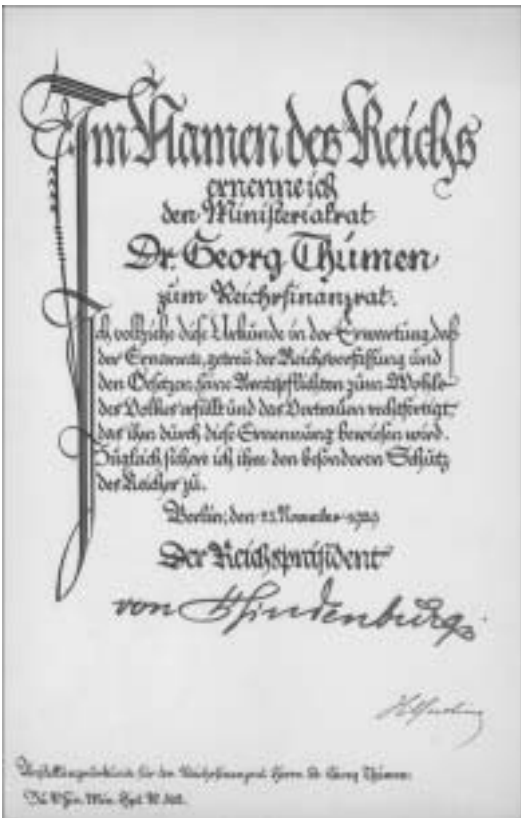 Im Namen des Reichs
ernenne ich
den Ministerialrat
Dr. Georg Thümen
zum Reichsfinanzrat.
Ich vollziehe diese Urkunde in der Erwartung, daß
der Ernannte, getreu der Reichsverfassung und
den Gesetzen, seine Amtspflichten zum Wohle
des Volkes erfüllt und das Vertrauen rechtfertigt,
das ihm durch diese Ernennung bewiesen wird.
Zugleich sichere ich ihm den besonderen Schutz
des Reiches zu.
Berlin, den 23. November 1929
Der Reichspräsident
von Hindenburg
für den Reichsfinanzrat Herrn Dr. Georg Thümen.